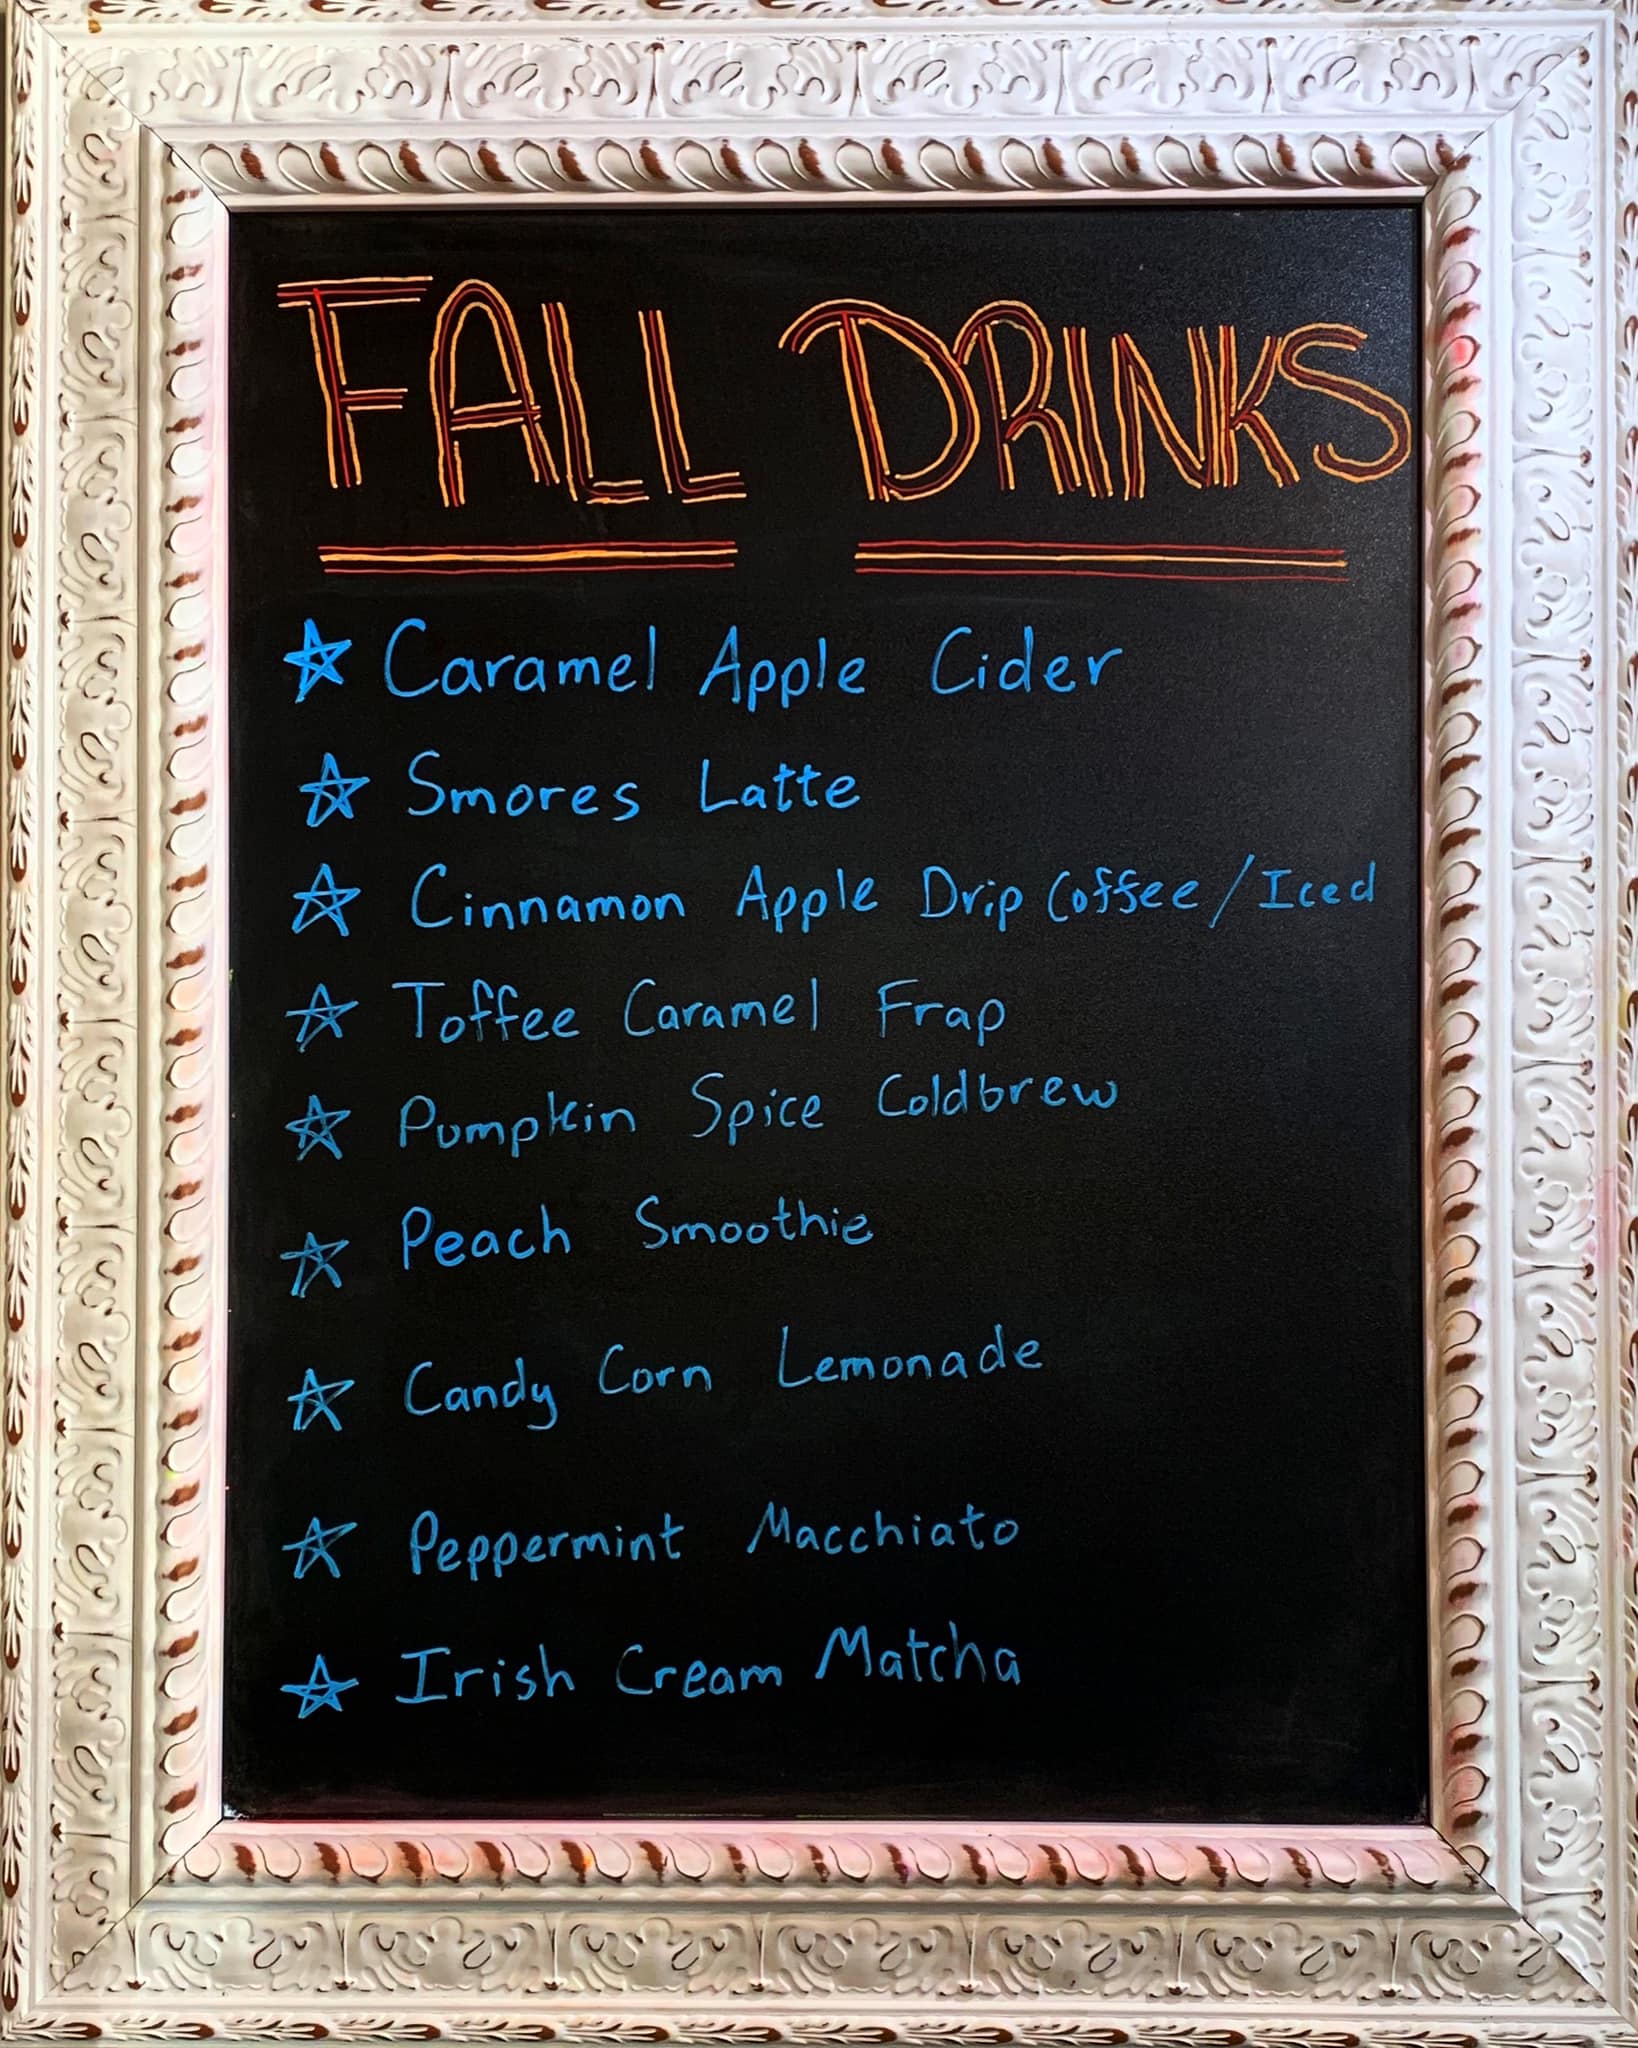 FALL DRINKS
Caramel Apple Cider
Smores Latte
Cinnamon Apple Drip Coffee/Iced
Toffee Caramel Frap
Pumpkin Spice Coldbrew
Peach Smoothie
Candy Corn Lemonade
Peppermint Macchiato
Irish Cream Matcha